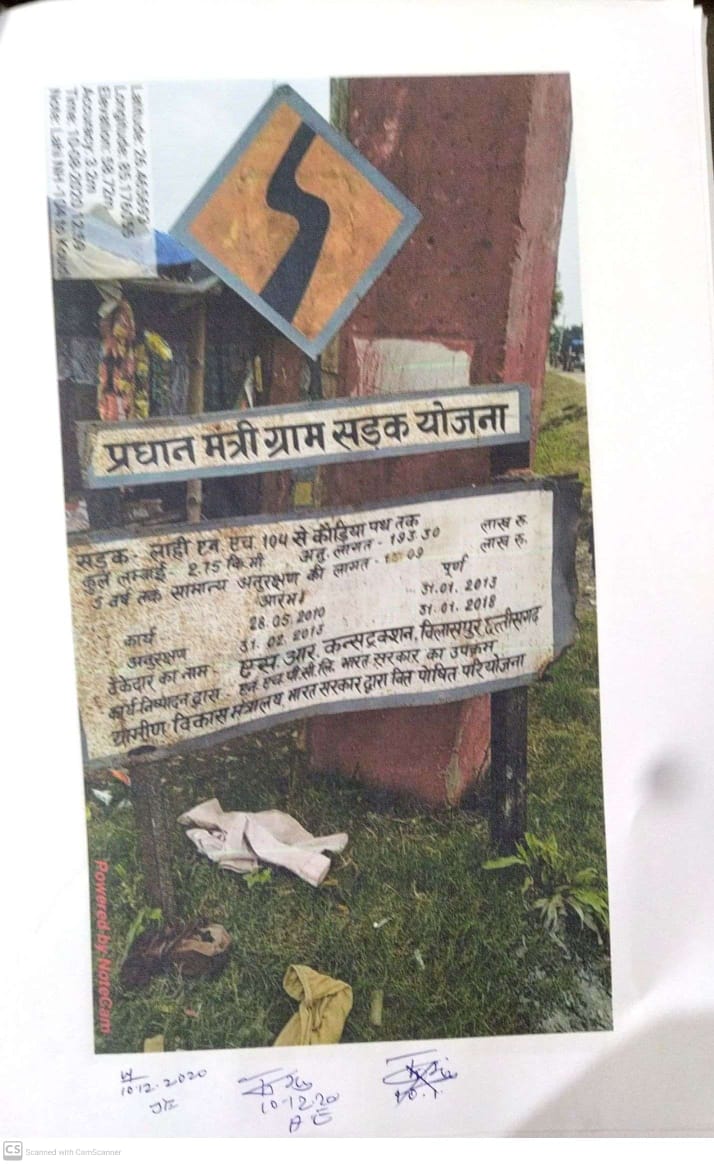 Latitude: 26.4456552
Longitude: 85.1176155
Elevation: 58.72m
Accuracy: 3.2m
Time: 10-08-2020 12:59
Note: Lahi NH-104 to
प्रधान मंत्री ग्राम सड़क योजना
सड़क - लाही एन एच 104 से कौड़िया पथ तक
कुल लम्बाई - 2.75 कि.मी. अनु. लागत - 193.30 लाख रु.
5 वर्ष तक सामान्य अनुरक्षण की लागत - 09 लाख रु.
आरंभ पूर्ण
कार्य 28.05.2010 31.01.2013
अनुरक्षण 31.02.2013 31.01.2018
ठेकेदार का नाम - एस.आर. कन्सट्रक्शन, विलासपुर छत्तीसगढ़
कार्य निष्पादन द्वारा - एन.एच.पी.सी.लि. भारत सरकार का उपक्रम
ग्रामीण विकास मंत्रालय, भारत सरकार द्वारा वित्त पोषित परियोजना
Powered by NoteCam
10.12.2020
JE
10.12.20
AE
CS Scanned with CamScanner